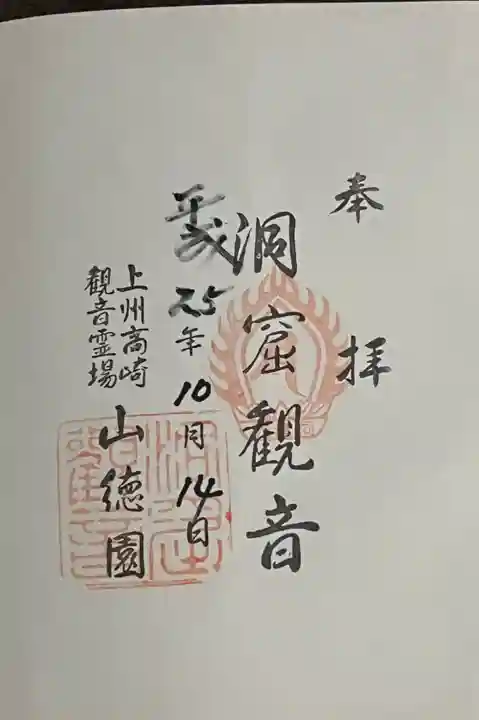 奉拝
洞窟観音
平成25年10月14日
上州高崎
観音霊場
山徳園